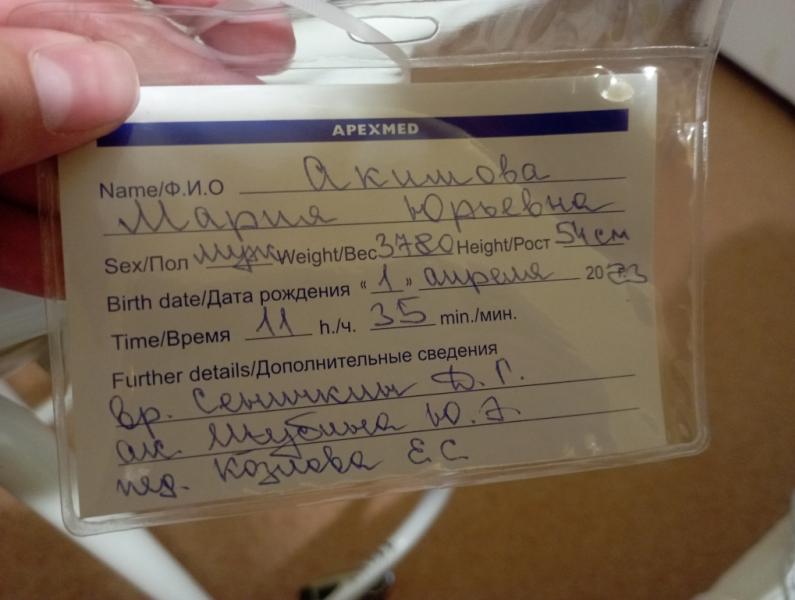 APEXMED
Name/Ф.И.О Акимова
Мария Юрьевна
Sex/Пол муж Weight/Вес 3780 Height/Рост 54 см
Birth date/Дата рождения « 1 » апреля 2023
Time/Время 11 h./ч. 35 min./мин.
Further details/Дополнительные сведения
вр. Сеничкин Д. Г.
ак. Шубина Ю. А.
пед. Козлова Е.С.